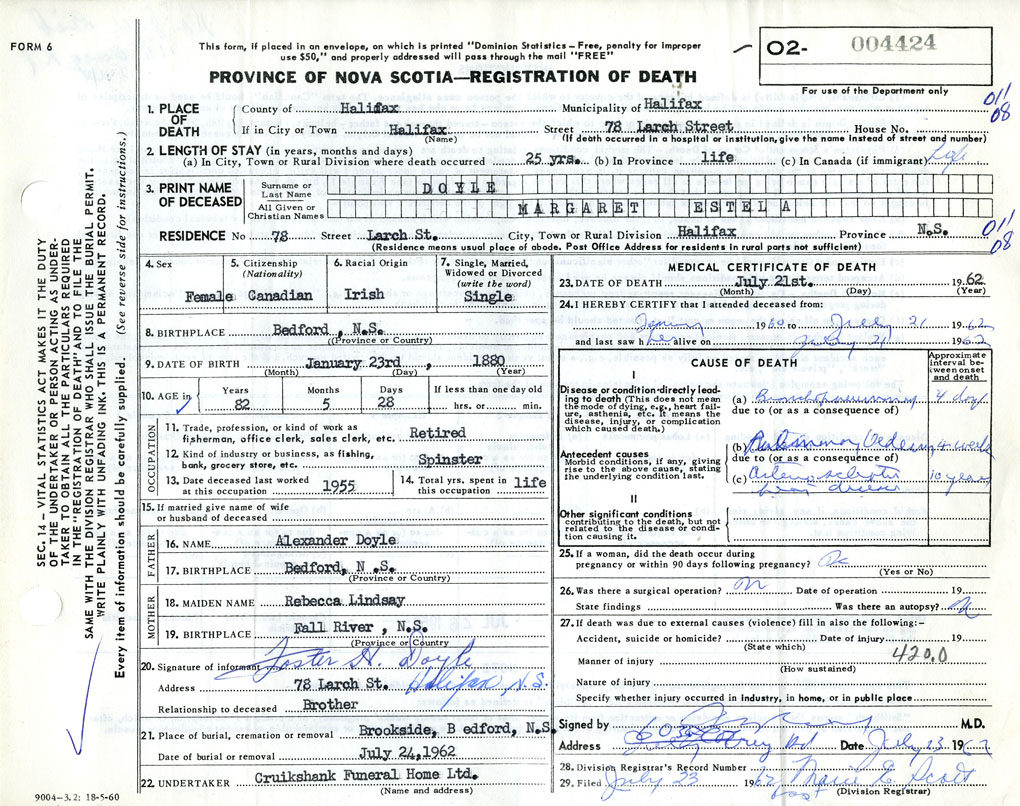 FORM 6
This form, if placed in an envelope, on which is printed "Dominion Statistics – Free, penalty for improper
use $50," and properly addressed will pass through the mail "FREE"
O2- 004424
For use of the Department only
PROVINCE OF NOVA SCOTIA—REGISTRATION OF DEATH
SEC. 14 – VITAL STATISTICS ACT MAKES IT THE DUTY
OF THE UNDERTAKER OR PERSON ACTING AS UNDER-
TAKER TO OBTAIN ALL THE PARTICULARS REQUIRED
IN THE "REGISTRATION OF DEATH" AND TO FILE THE
SAME WITH THE DIVISION REGISTRAR WHO SHALL ISSUE THE BURIAL PERMIT.
WRITE PLAINLY WITH UNFADING INK. THIS IS A PERMANENT RECORD.
Every item of information should be carefully supplied. (See reverse side for instructions.)
1. PLACE OF DEATH
County of Halifax Municipality of Halifax
011
08
If in City or Town Halifax Street 78 Larch Street House No.
(Name) (If death occurred in a hospital or institution, give the name instead of street and number)
2. LENGTH OF STAY (in years, months and days)
(a) In City, Town or Rural Division where death occurred 25 yrs. (b) In Province life (c) In Canada (if immigrant) Life
3. PRINT NAME OF DECEASED
Surname or Last Name DOYLE
All Given or Christian Names MARGARET ESTELA
RESIDENCE No 78 Street Larch St. City, Town or Rural Division Halifax Province N.S.
011
08
(Residence means usual place of abode. Post Office Address for residents in rural parts not sufficient)
4. Sex
Female
5. Citizenship
(Nationality)
Canadian
6. Racial Origin
Irish
7. Single, Married,
Widowed or Divorced
(write the word)
Single
8. BIRTHPLACE Bedford, N.S.
(Province or Country)
9. DATE OF BIRTH January 23rd, 1880
(Month) (Day) (Year)
10. AGE in
Years 82
Months 5
Days 28
If less than one day old
hrs. or min.
OCCUPATION
11. Trade, profession, or kind of work as
fisherman, office clerk, sales clerk, etc. Retired
12. Kind of industry or business, as fishing,
bank, grocery store, etc. Spinster
13. Date deceased last worked
at this occupation 1955
14. Total yrs. spent in
this occupation life
15. If married give name of wife
or husband of deceased
FATHER
16. NAME Alexander Doyle
17. BIRTHPLACE Bedford, N.S.
(Province or Country)
MOTHER
18. MAIDEN NAME Rebecca Lindsay
19. BIRTHPLACE Fall River, N.S.
(Province or Country)
20. Signature of informant Foster H. Doyle
Address 78 Larch St. Halifax, N.S.
Relationship to deceased Brother
21. Place of burial, cremation or removal Brookside, B edford, N.S.
Date of burial or removal July 24,1962
22. UNDERTAKER Cruikshank Funeral Home Ltd.
(Name and address)
9004–3.2: 18-5-60
MEDICAL CERTIFICATE OF DEATH
23. DATE OF DEATH July 21st. 1962
(Month) (Day) (Year)
24. I HEREBY CERTIFY that I attended deceased from:
January 1960 to July 21 1962
and last saw her alive on July 21 1962
CAUSE OF DEATH
Approximate
interval be-
tween onset
and death
I
Disease or condition directly lead-
ing to death (This does not mean
the mode of dying, e.g., heart fail-
ure, asthenia, etc. It means the
disease, injury, or complication
which caused death.)
(a) Bronchopneumonia 4 days
due to (or as a consequence of)
Antecedent causes
Morbid conditions, if any, giving
rise to the above cause, stating
the underlying condition last.
(b) Pulmonary Oedema 4 weeks
due to (or as a consequence of)
(c) Arteriosclerotic 10 years
heart disease
II
Other significant conditions
contributing to the death, but not
related to the disease or condi-
tion causing it.
25. If a woman, did the death occur during
pregnancy or within 90 days following pregnancy?
(Yes or No)
26. Was there a surgical operation? Date of operation 19
State findings Was there an autopsy?
27. If death was due to external causes (violence) fill in also the following:–
Accident, suicide or homicide? Date of injury 19
(State which)
420.0
Manner of injury
(How sustained)
Nature of injury
Specify whether injury occurred in industry, in home, or in public place
Signed by M.D.
Address Date July 23 1962
28. Division Registrar's Record Number
29. Filed July 23 1962 Scott
(Division Registrar)